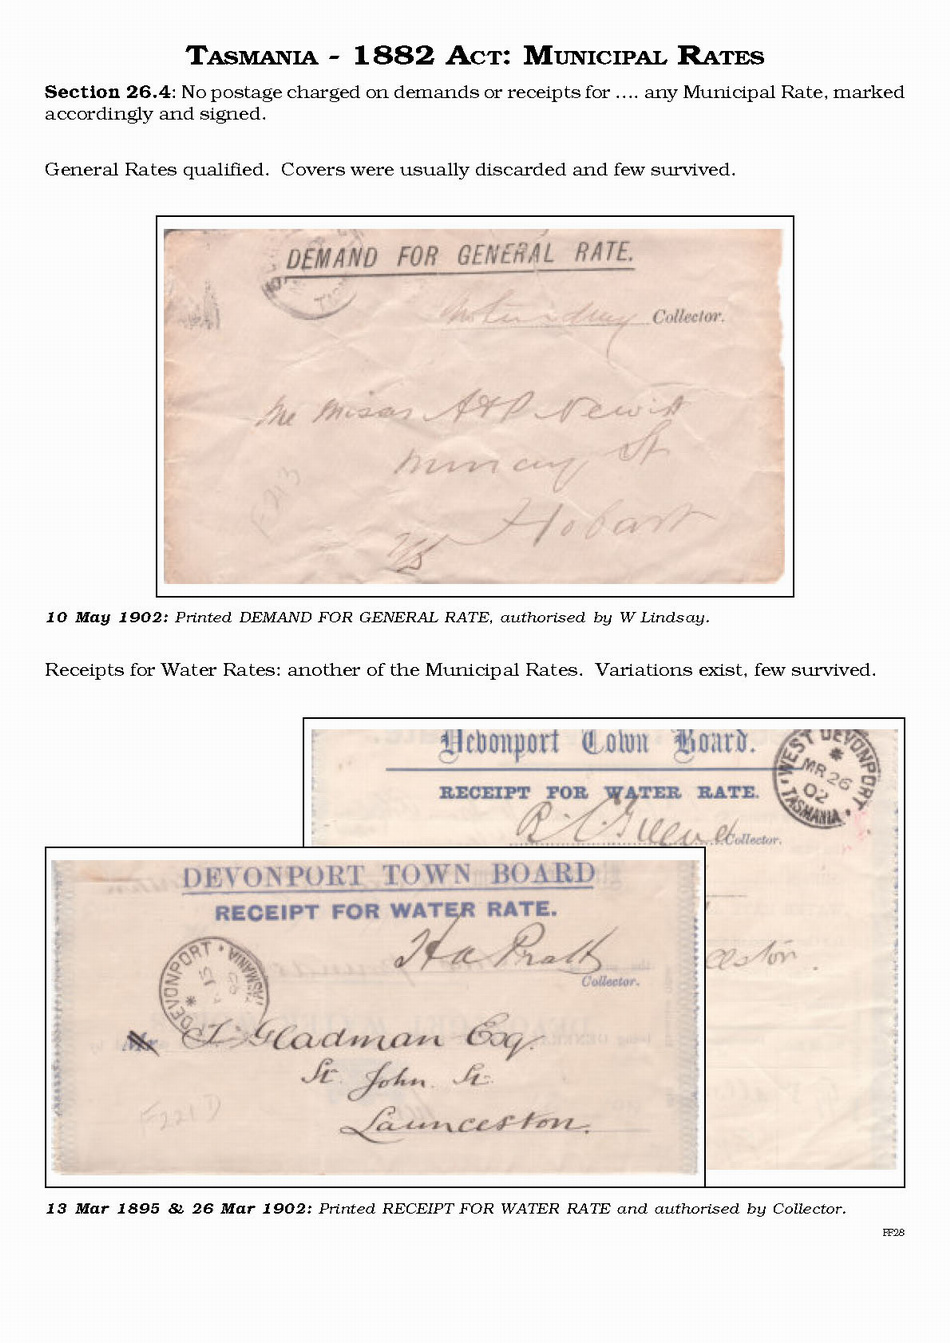 TASMANIA - 1882 ACT: MUNICIPAL RATES
Section 26.4: No postage charged on demands or receipts for .... any Municipal Rate, marked
accordingly and signed.
General Rates qualified. Covers were usually discarded and few survived.
DEMAND FOR GENERAL RATE.
Collector.
A & P Hewitt
St
Hobart
F213
10 May 1902: Printed DEMAND FOR GENERAL RATE, authorised by W Lindsay.
Receipts for Water Rates: another of the Municipal Rates. Variations exist, few survived.
Devonport Town Board.
RECEIPT FOR WATER RATE.
Collector.
WEST DEVONPORT
MR 26
02
TASMANIA
DEVONPORT TOWN BOARD
RECEIPT FOR WATER RATE.
H A Pratt
Collector.
DEVONPORT
TASMANIA
Mr
Gladman Esq.
St. John. St.
Launceston.
F221D
13 Mar 1895 & 26 Mar 1902: Printed RECEIPT FOR WATER RATE and authorised by Collector.
FF28